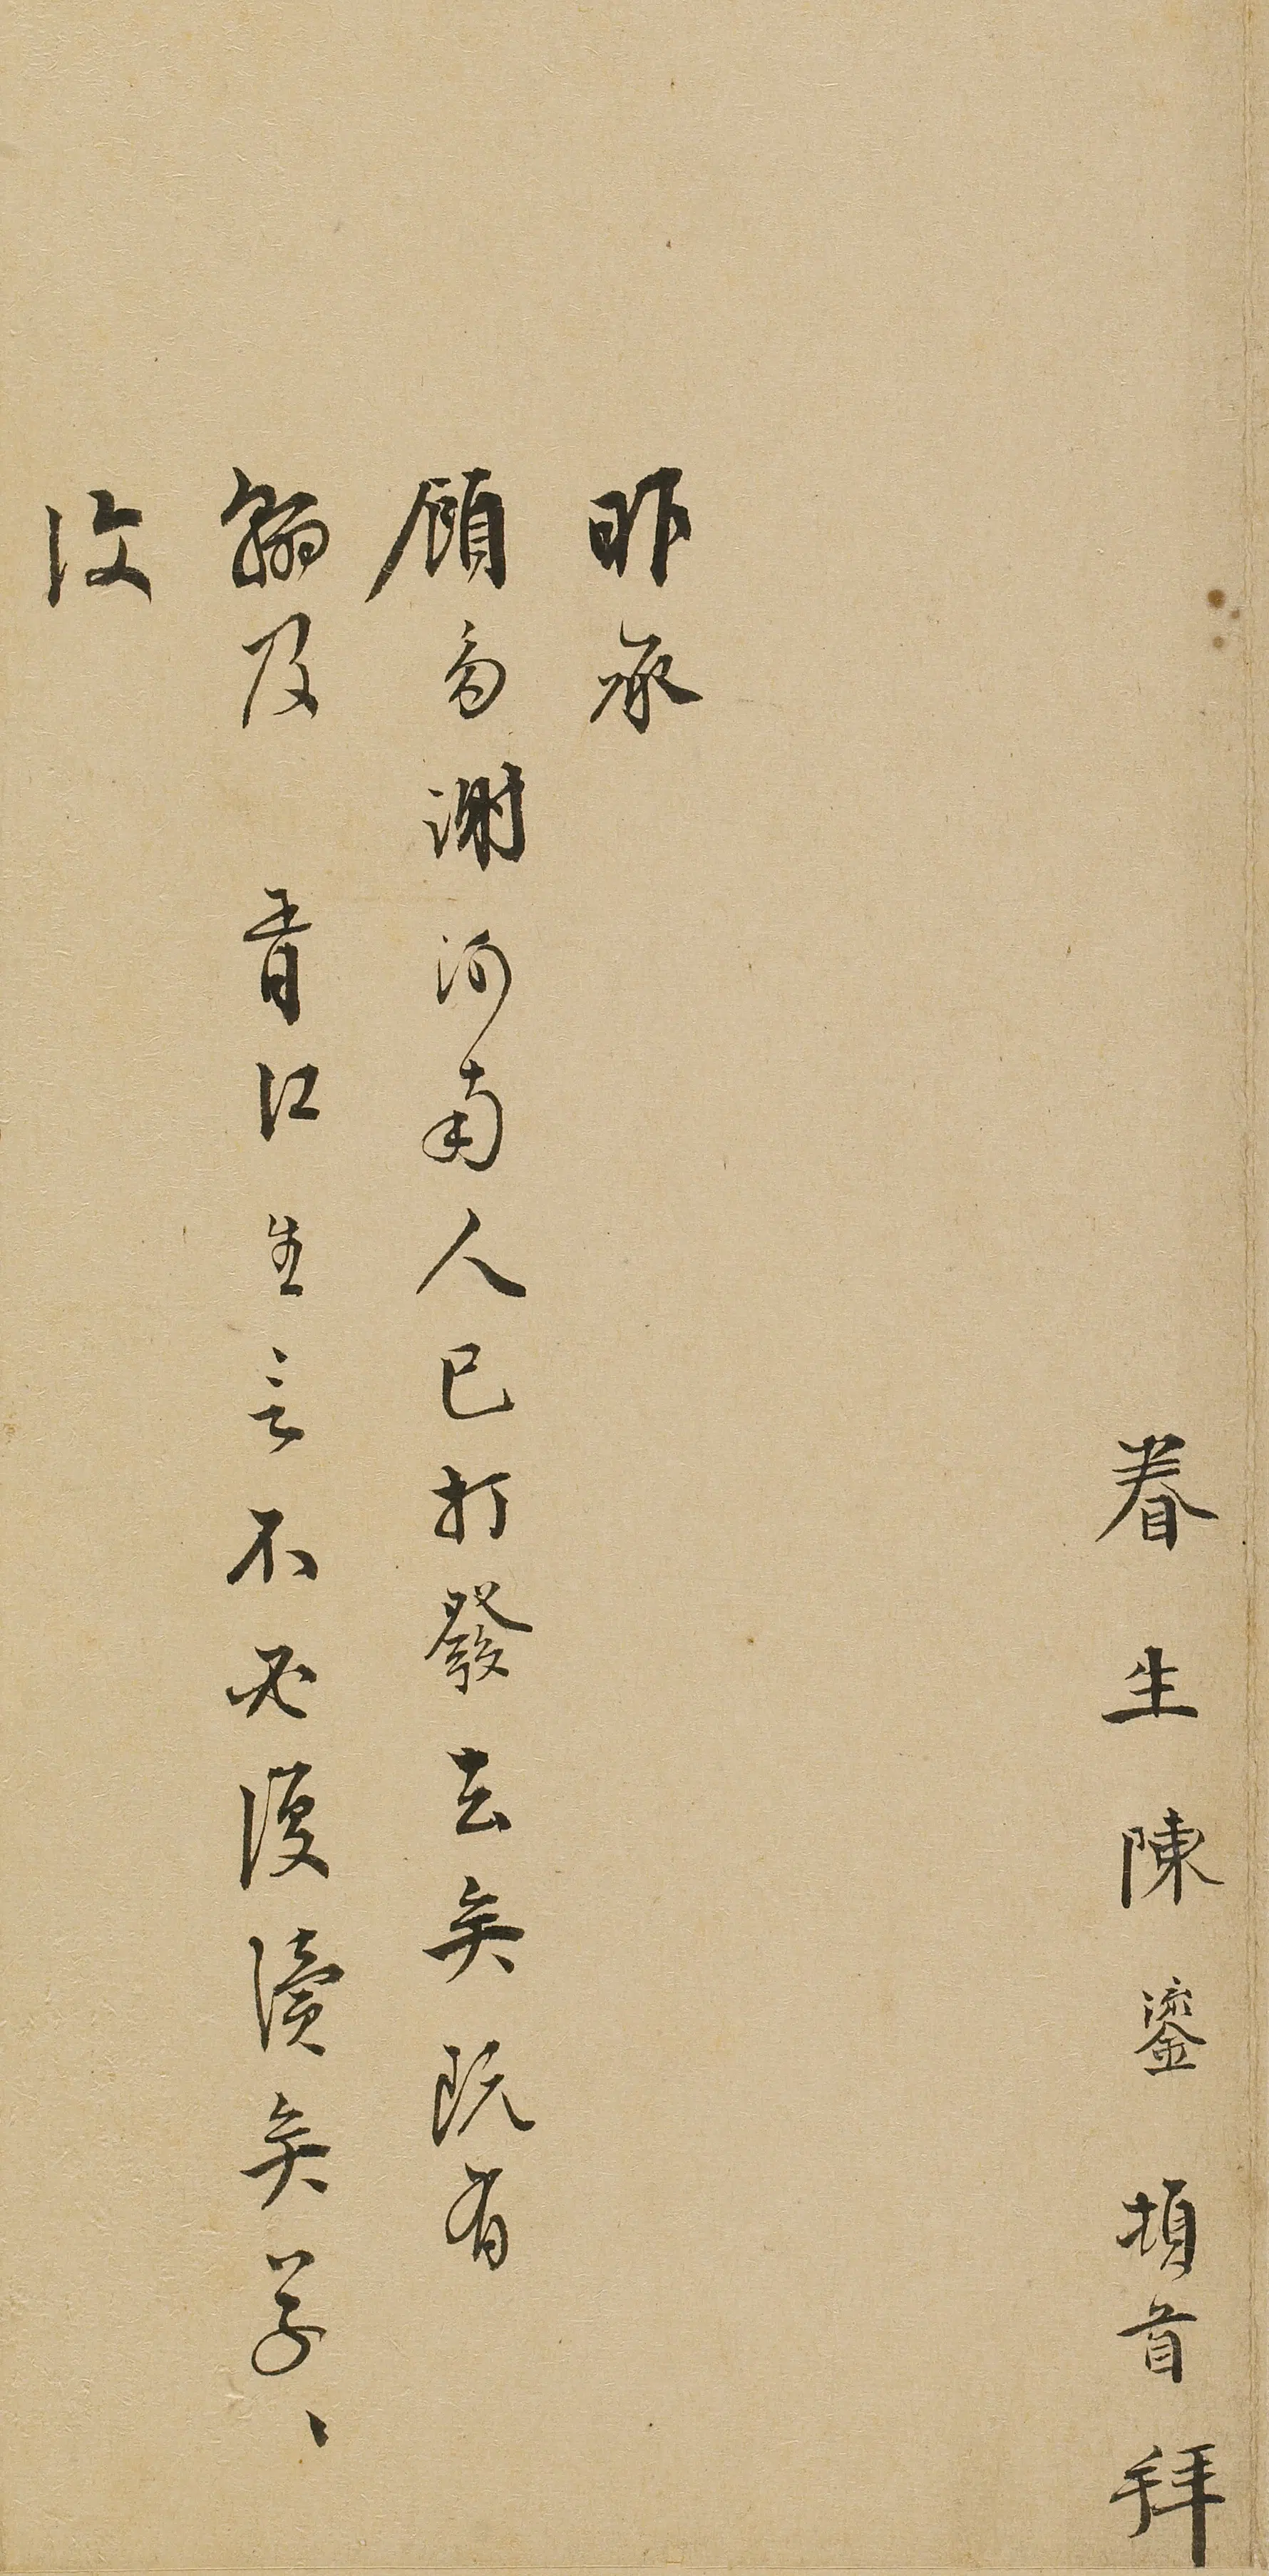 眷生陳鎏頓首拜
昨承
顧多謝河南人已打發去矣既有
翰及 胥江生言不必復瀆矣草〻
復